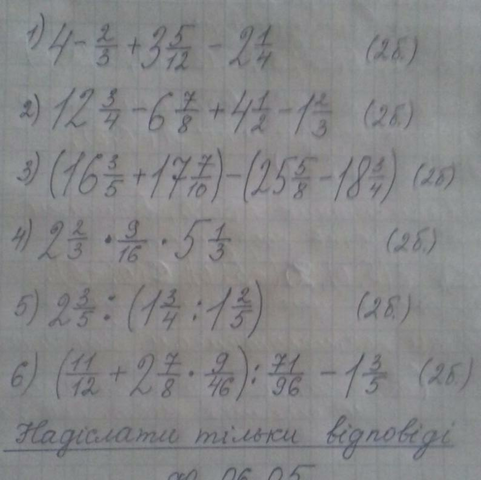 1) 4 - 2/3 + 3 5/12 - 2 1/4 (2б.)
2) 12 3/4 - 6 7/8 + 4 1/2 - 1 2/3 (2б.)
3) (16 3/5 + 17 7/10) - (25 5/8 - 18 3/4) (2б)
4) 2 2/3 · 9/16 · 5 1/3 (2б.)
5) 2 3/5 : (1 3/4 : 1 2/5) (2б.)
6) (11/12 + 2 7/8 · 9/46) : 71/96 - 1 3/5 (2б.)
Надіслати тільки відповіді
до 06.05